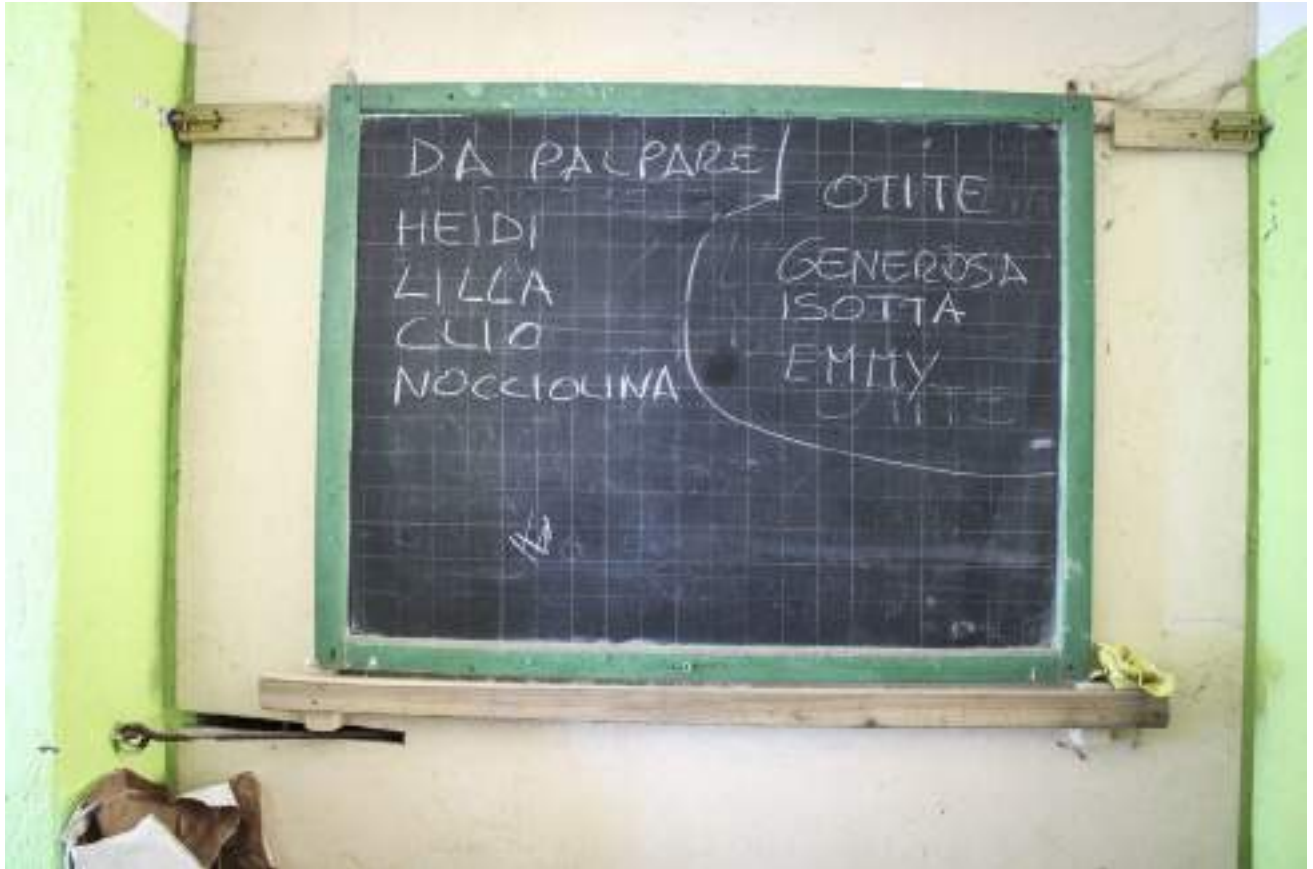 DA PALPARE
HEIDI
LILLA
CLIO
NOCCIOLINA
OTITE
GENEROSA
ISOTTA
EMMY
OTITE